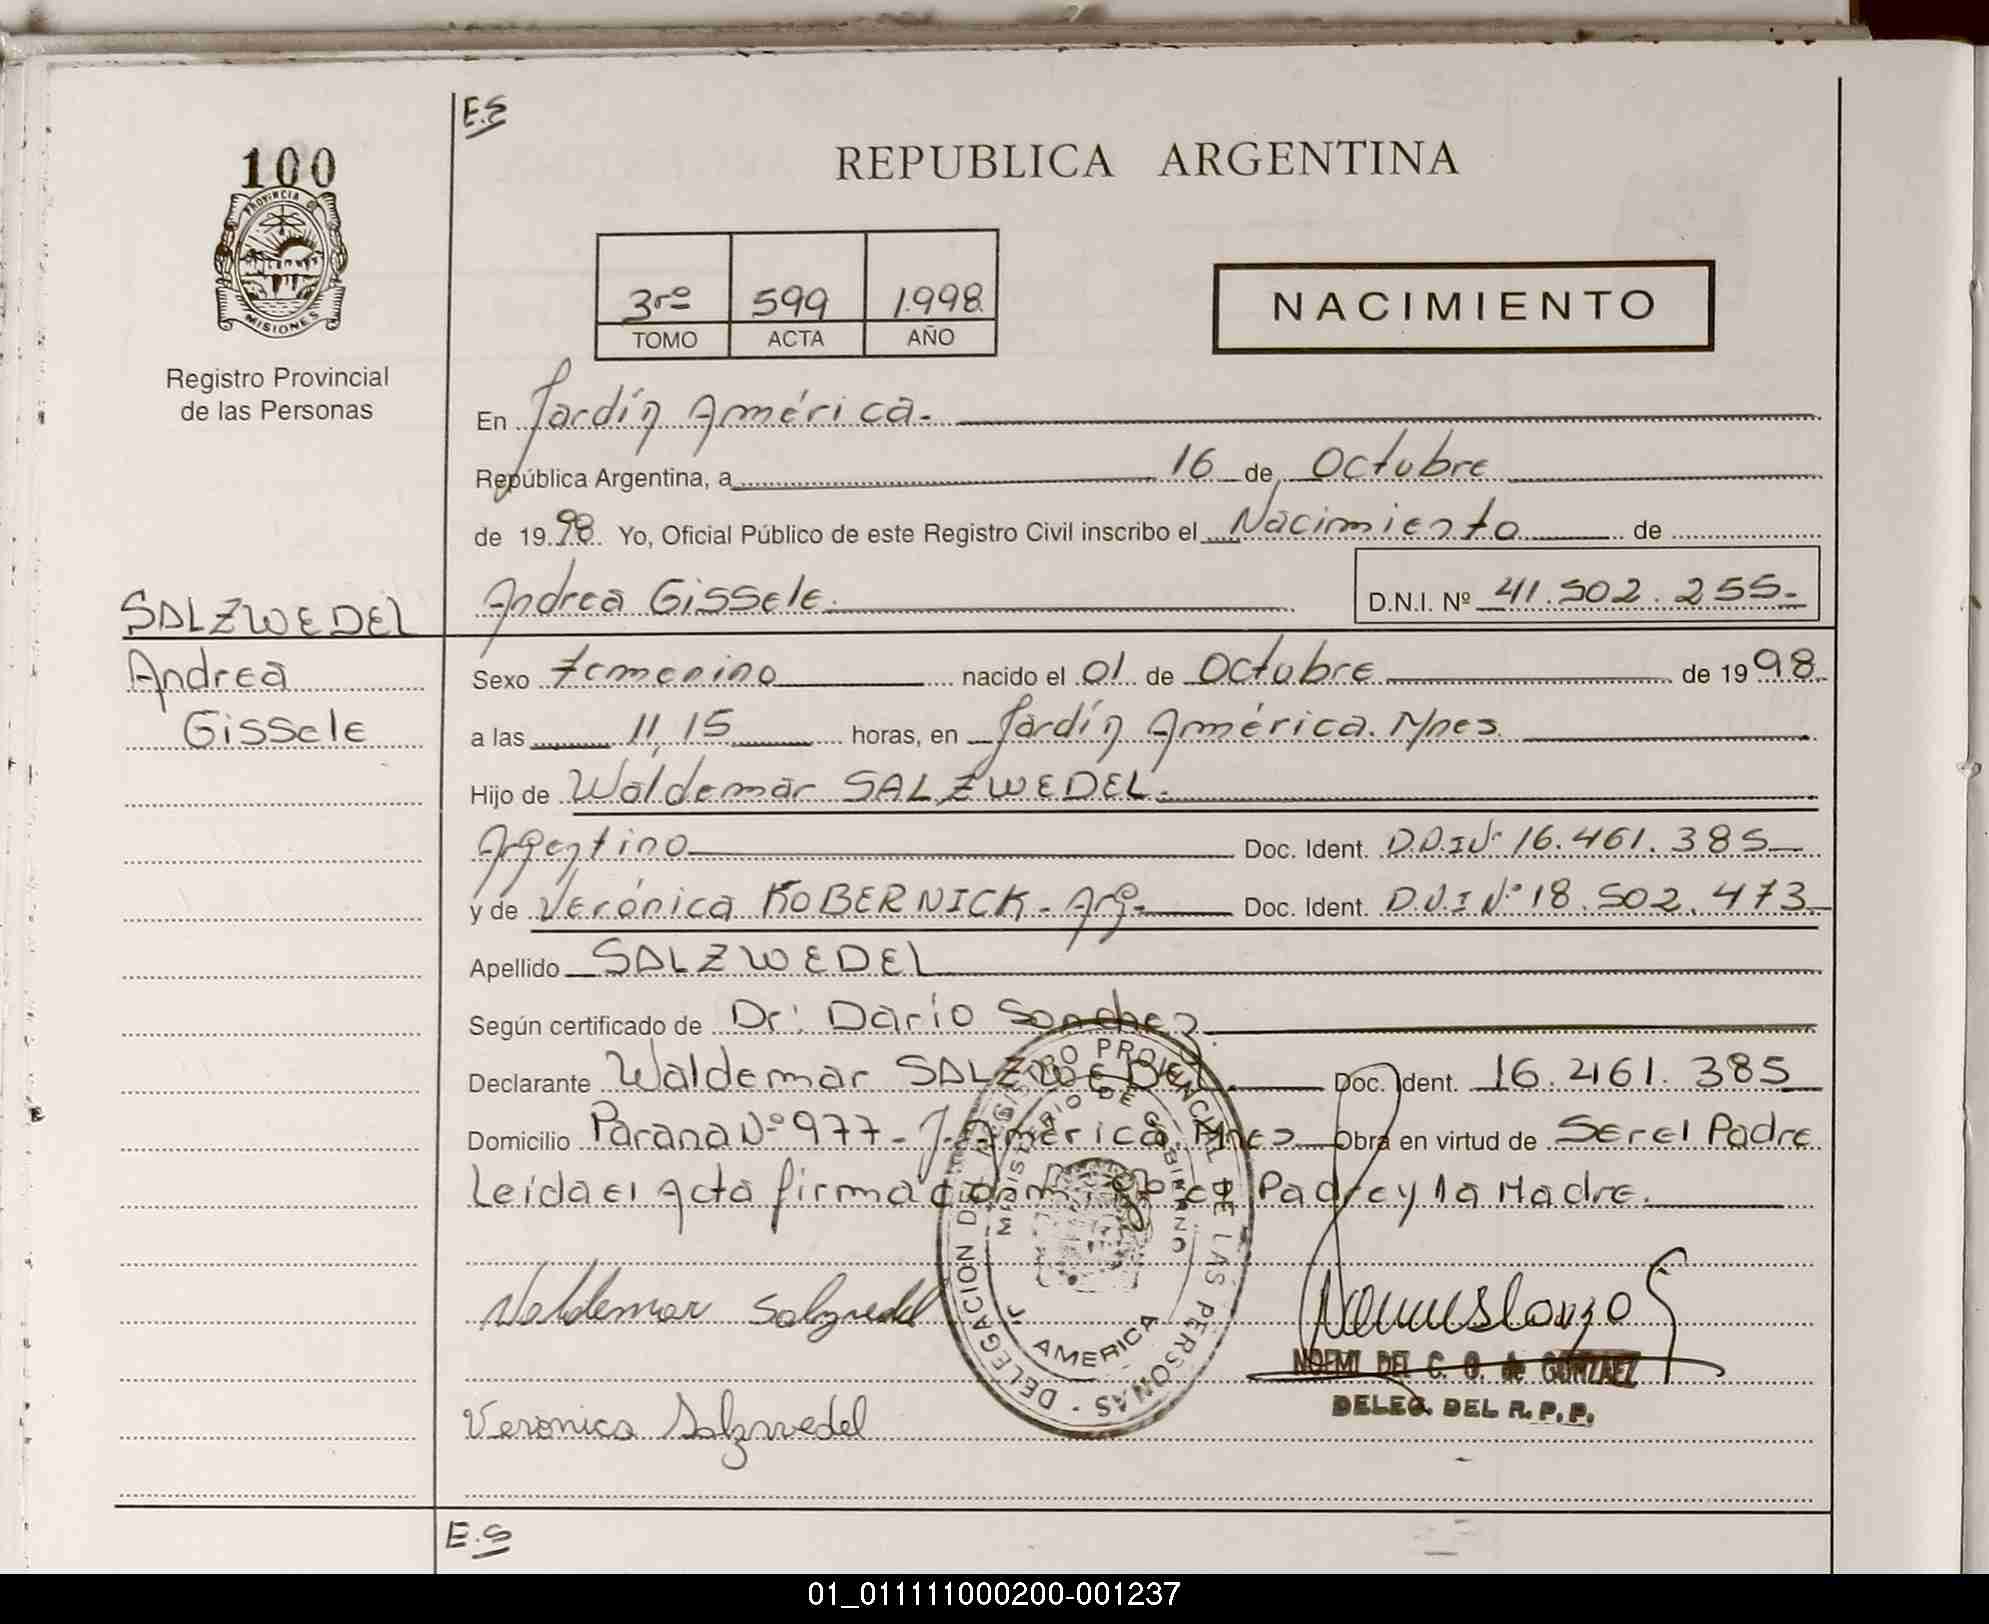 E.S
100
REPUBLICA ARGENTINA
PROVINCIA DE
MISIONES
3ro 599 1.998
TOMO ACTA AÑO
NACIMIENTO
Registro Provincial
de las Personas
En Jardín América.
República Argentina, a 16 de Octubre
de 19 98 Yo, Oficial Público de este Registro Civil inscribo el Nacimiento de
SALZWEDEL
Andrea Gissele. D.N.I. Nº 41.502.255-
Andrea
Gissele
Sexo Femenino nacido el 01 de Octubre de 19 98
a las 11,15 horas, en Jardín América. Mnes.
Hijo de Waldemar SALZWEDEL.
Argentino Doc. Ident. D.N.I Nº 16.461.385
y de Verónica KOBERNICK - Arg. Doc. Ident. D.N.I Nº 18.502.473
Apellido SALZWEDEL
Según certificado de Dr: Darío Sanchez
Declarante Waldemar SALZWEDEL Doc. Ident. 16.461.385
Domicilio Parana Nº 977 - J. América. Mnes Obra en virtud de Ser el Padre
Leída el Acta firma Padre y la Madre.
DELEGACION DEL REGISTRO PROVINCIAL DE LAS PERSONAS
MINISTERIO DE GOBIERNO
J. AMERICA
Waldemar Salzwedel
NOEMI DEL C. G. de GONZALEZ
DELEG. DEL R.P.P.
Veronica Salzwedel
E.S
01_011111000200-001237